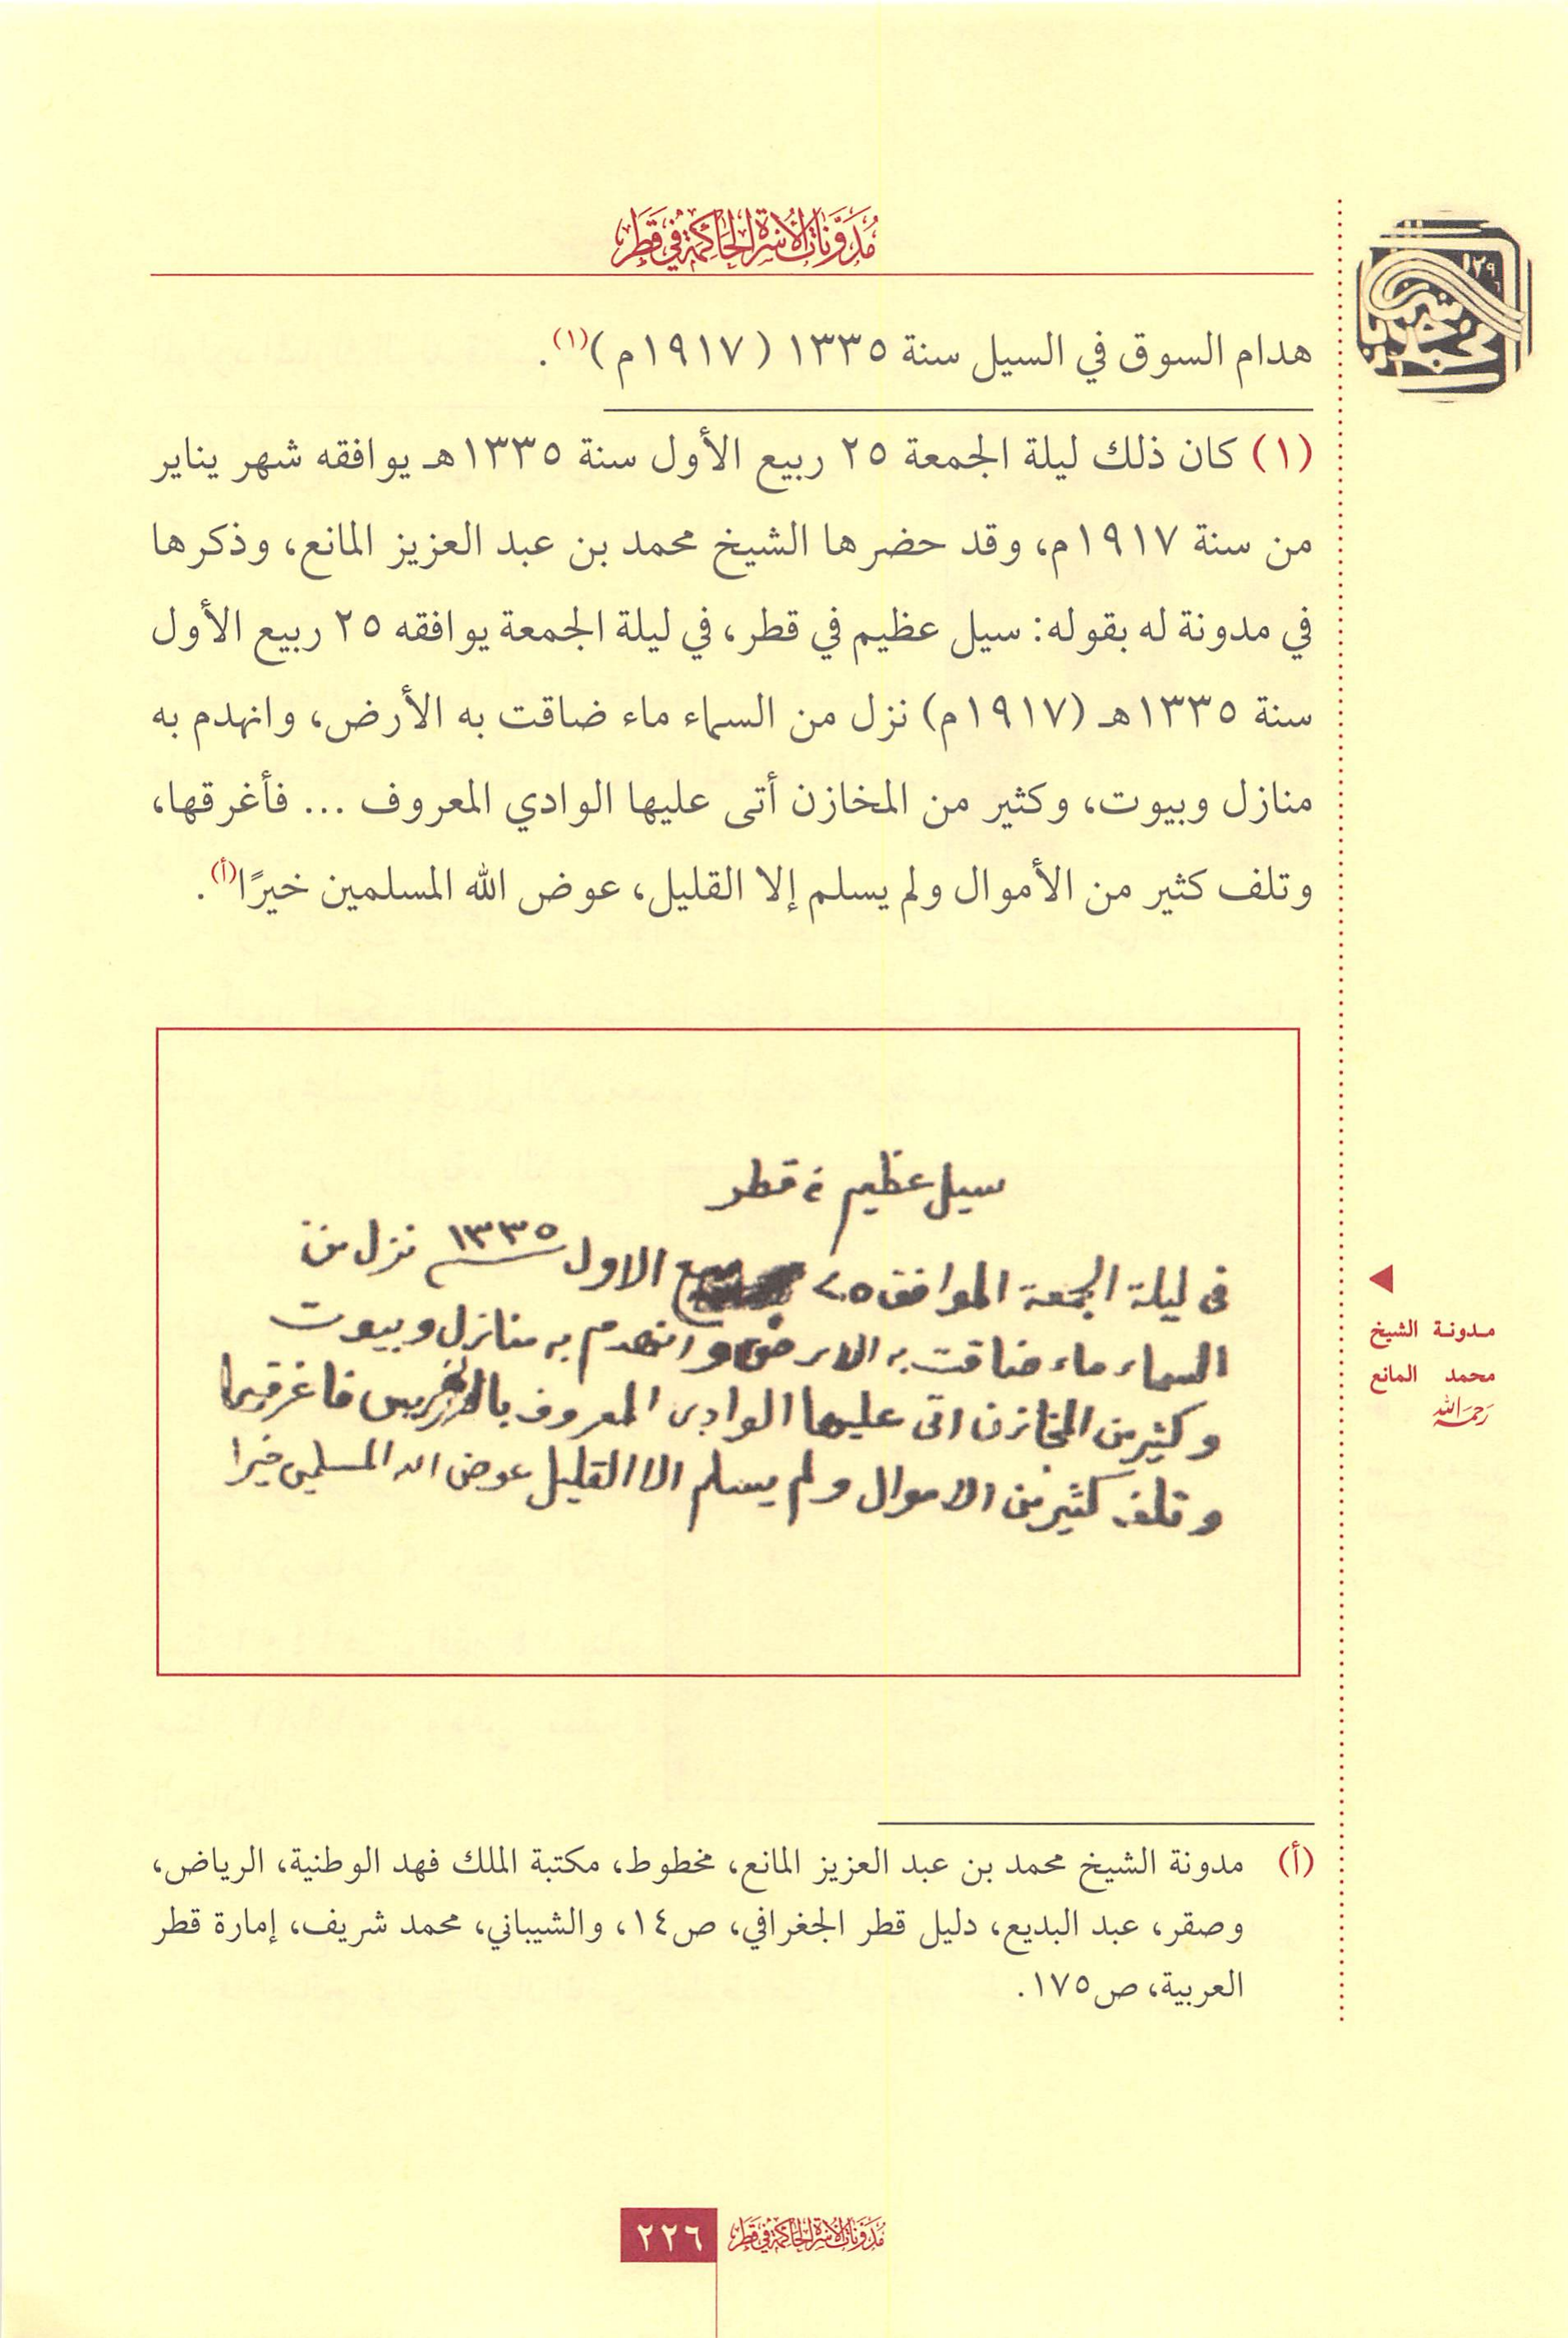 مدونات الأسرة الحاكمة في قطر
هدام السوق في السيل سنة ١٣٣٥ (١٩١٧م)(١).
(١) كان ذلك ليلة الجمعة ٢٥ ربيع الأول سنة ١٣٣٥هـ يوافقه شهر يناير
من سنة ١٩١٧م، وقد حضرها الشيخ محمد بن عبد العزيز المانع، وذكرها
في مدونة له بقوله: سيل عظيم في قطر، في ليلة الجمعة يوافقه ٢٥ ربيع الأول
سنة ١٣٣٥هـ (١٩١٧م) نزل من السماء ماء ضاقت به الأرض، وانهدم به
منازل وبيوت، وكثير من المخازن أتى عليها الوادي المعروف ... فأغرقها،
وتلف كثير من الأموال ولم يسلم إلا القليل، عوض الله المسلمين خيرًا(أ).
سيل عظيم في قطر
في ليلة الجمعة الموافق ٢٥ ربيع الاول ١٣٣٥ نزل من
السماء ماء ضاقت به الارض وانهدم به منازل وبيوت
وكثير من المخازن اتى عليها الوادي المعروف فاغرقها
وتلف كثير من الاموال ولم يسلم الا القليل عوض الله المسلمين خيرا
مدونة الشيخ
محمد المانع
رحمه الله
(أ) مدونة الشيخ محمد بن عبد العزيز المانع، مخطوط، مكتبة الملك فهد الوطنية، الرياض،
وصقر، عبد البديع، دليل قطر الجغرافي، ص١٤، والشيباني، محمد شريف، إمارة قطر
العربية، ص١٧٥.
مدونات الأسرة الحاكمة في قطر ٢٢٦